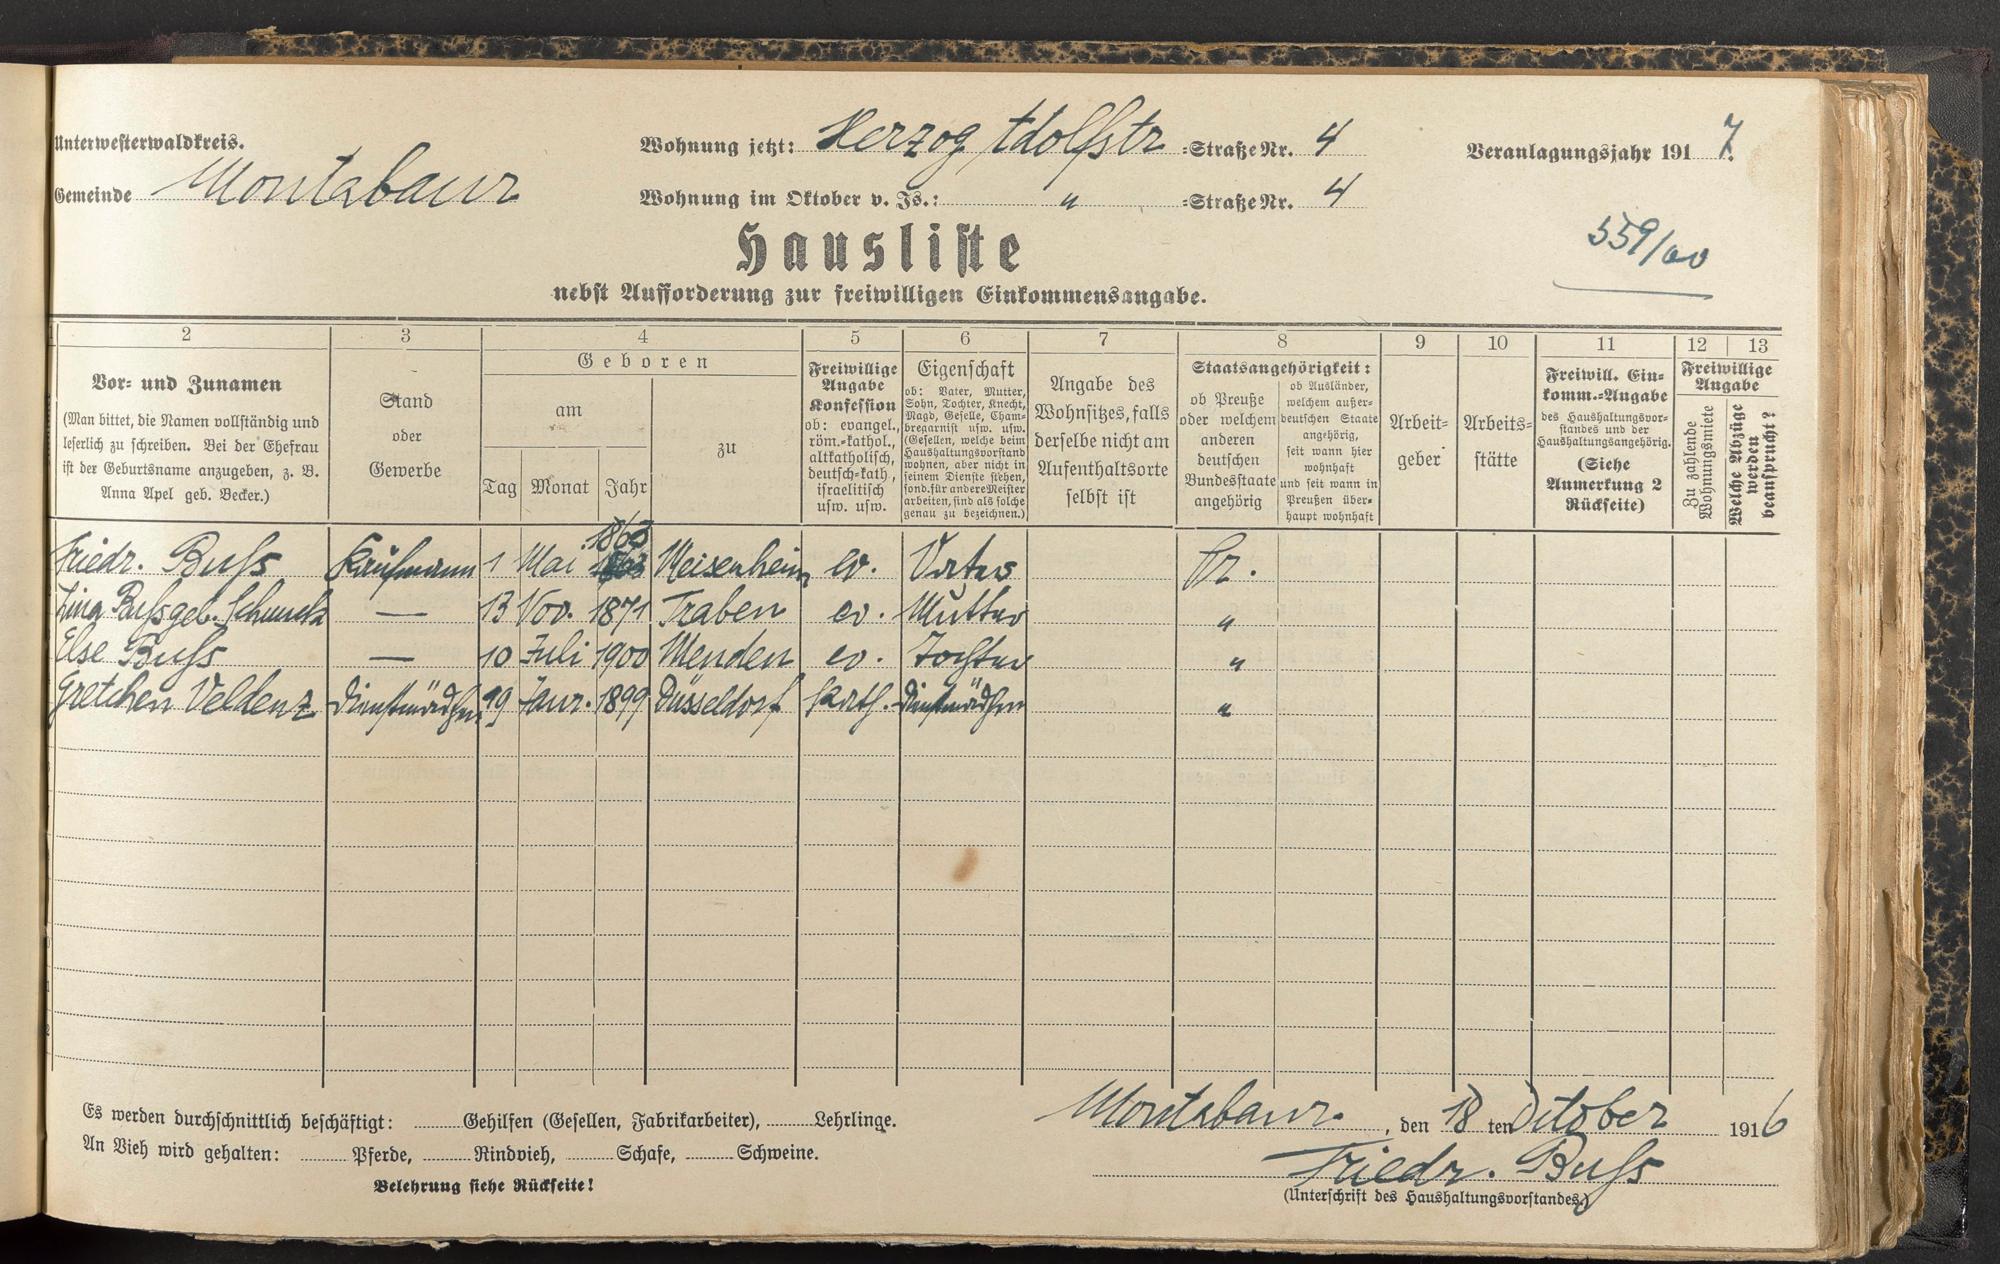 Unterwesterwaldkreis.
Gemeinde Montabaur
Wohnung jetzt: Herzog Adolfstr =Straße Nr. 4
Wohnung im Oktober v. Js.: " =Straße Nr. 4
Veranlagungsjahr 1917.
559/00
Hausliste
nebst Aufforderung zur freiwilligen Einkommensangabe.
2 3 4 5 6 7 8 9 10 11 12 13
Vor- und Zunamen
(Man bittet, die Namen vollständig und
leserlich zu schreiben. Bei der Ehefrau
ist der Geburtsname anzugeben, z. B.
Anna Apel geb. Becker.)
Stand
oder
Gewerbe
Geboren
am
Tag Monat Jahr
zu
Freiwillige
Angabe
Konfession
ob: evangel.,
röm.-kathol.,
altkatholisch,
deutsch-kath.,
israelitisch
usw. usw.
Eigenschaft
ob: Vater, Mutter,
Sohn, Tochter, Knecht,
Magd, Geselle, Cham-
bregarnist usw. usw.
(Gesellen, welche beim
Haushaltungsvorstand
wohnen, aber nicht in
seinem Dienste stehen,
sond. für andere Meister
arbeiten, sind als solche
genau zu bezeichnen.)
Angabe des
Wohnsitzes, falls
derselbe nicht am
Aufenthaltsorte
selbst ist
Staatsangehörigkeit:
ob Preuße
oder welchem
anderen
deutschen
Bundesstaate
angehörig
ob Ausländer,
welchem außer-
deutschen Staate
angehörig,
seit wann hier
wohnhaft
und seit wann in
Preußen über-
haupt wohnhaft
Arbeit-
geber
Arbeits-
stätte
Freiwill. Ein-
komm.-Angabe
des Haushaltungsvor-
standes und der
Haushaltungsangehörig.
(Siehe
Anmerkung 2
Rückseite)
Freiwillige
Angabe
Zu zahlende
Wohnungsmiete
Welche Abzüge
werden
beansprucht?
1863
Friedr. Buß Kaufmann 1 Mai Meisenheim ev. Vater Pr.
Lina Buß geb. Schunck — 13 Nov. 1871 Traben ev. Mutter "
Else Buß — 10 Juli 1900 Menden ev. Tochter "
Gretchen Veldenz Dienstmädchen 19 Janr. 1899 Düsseldorf kath. Dienstmädchen "
Es werden durchschnittlich beschäftigt: Gehilfen (Gesellen, Fabrikarbeiter), Lehrlinge.
An Vieh wird gehalten: Pferde, Rindvieh, Schafe, Schweine.
Belehrung siehe Rückseite!
Montabaur, den 18 ten October 1916
Friedr. Buß
(Unterschrift des Haushaltungsvorstandes.)